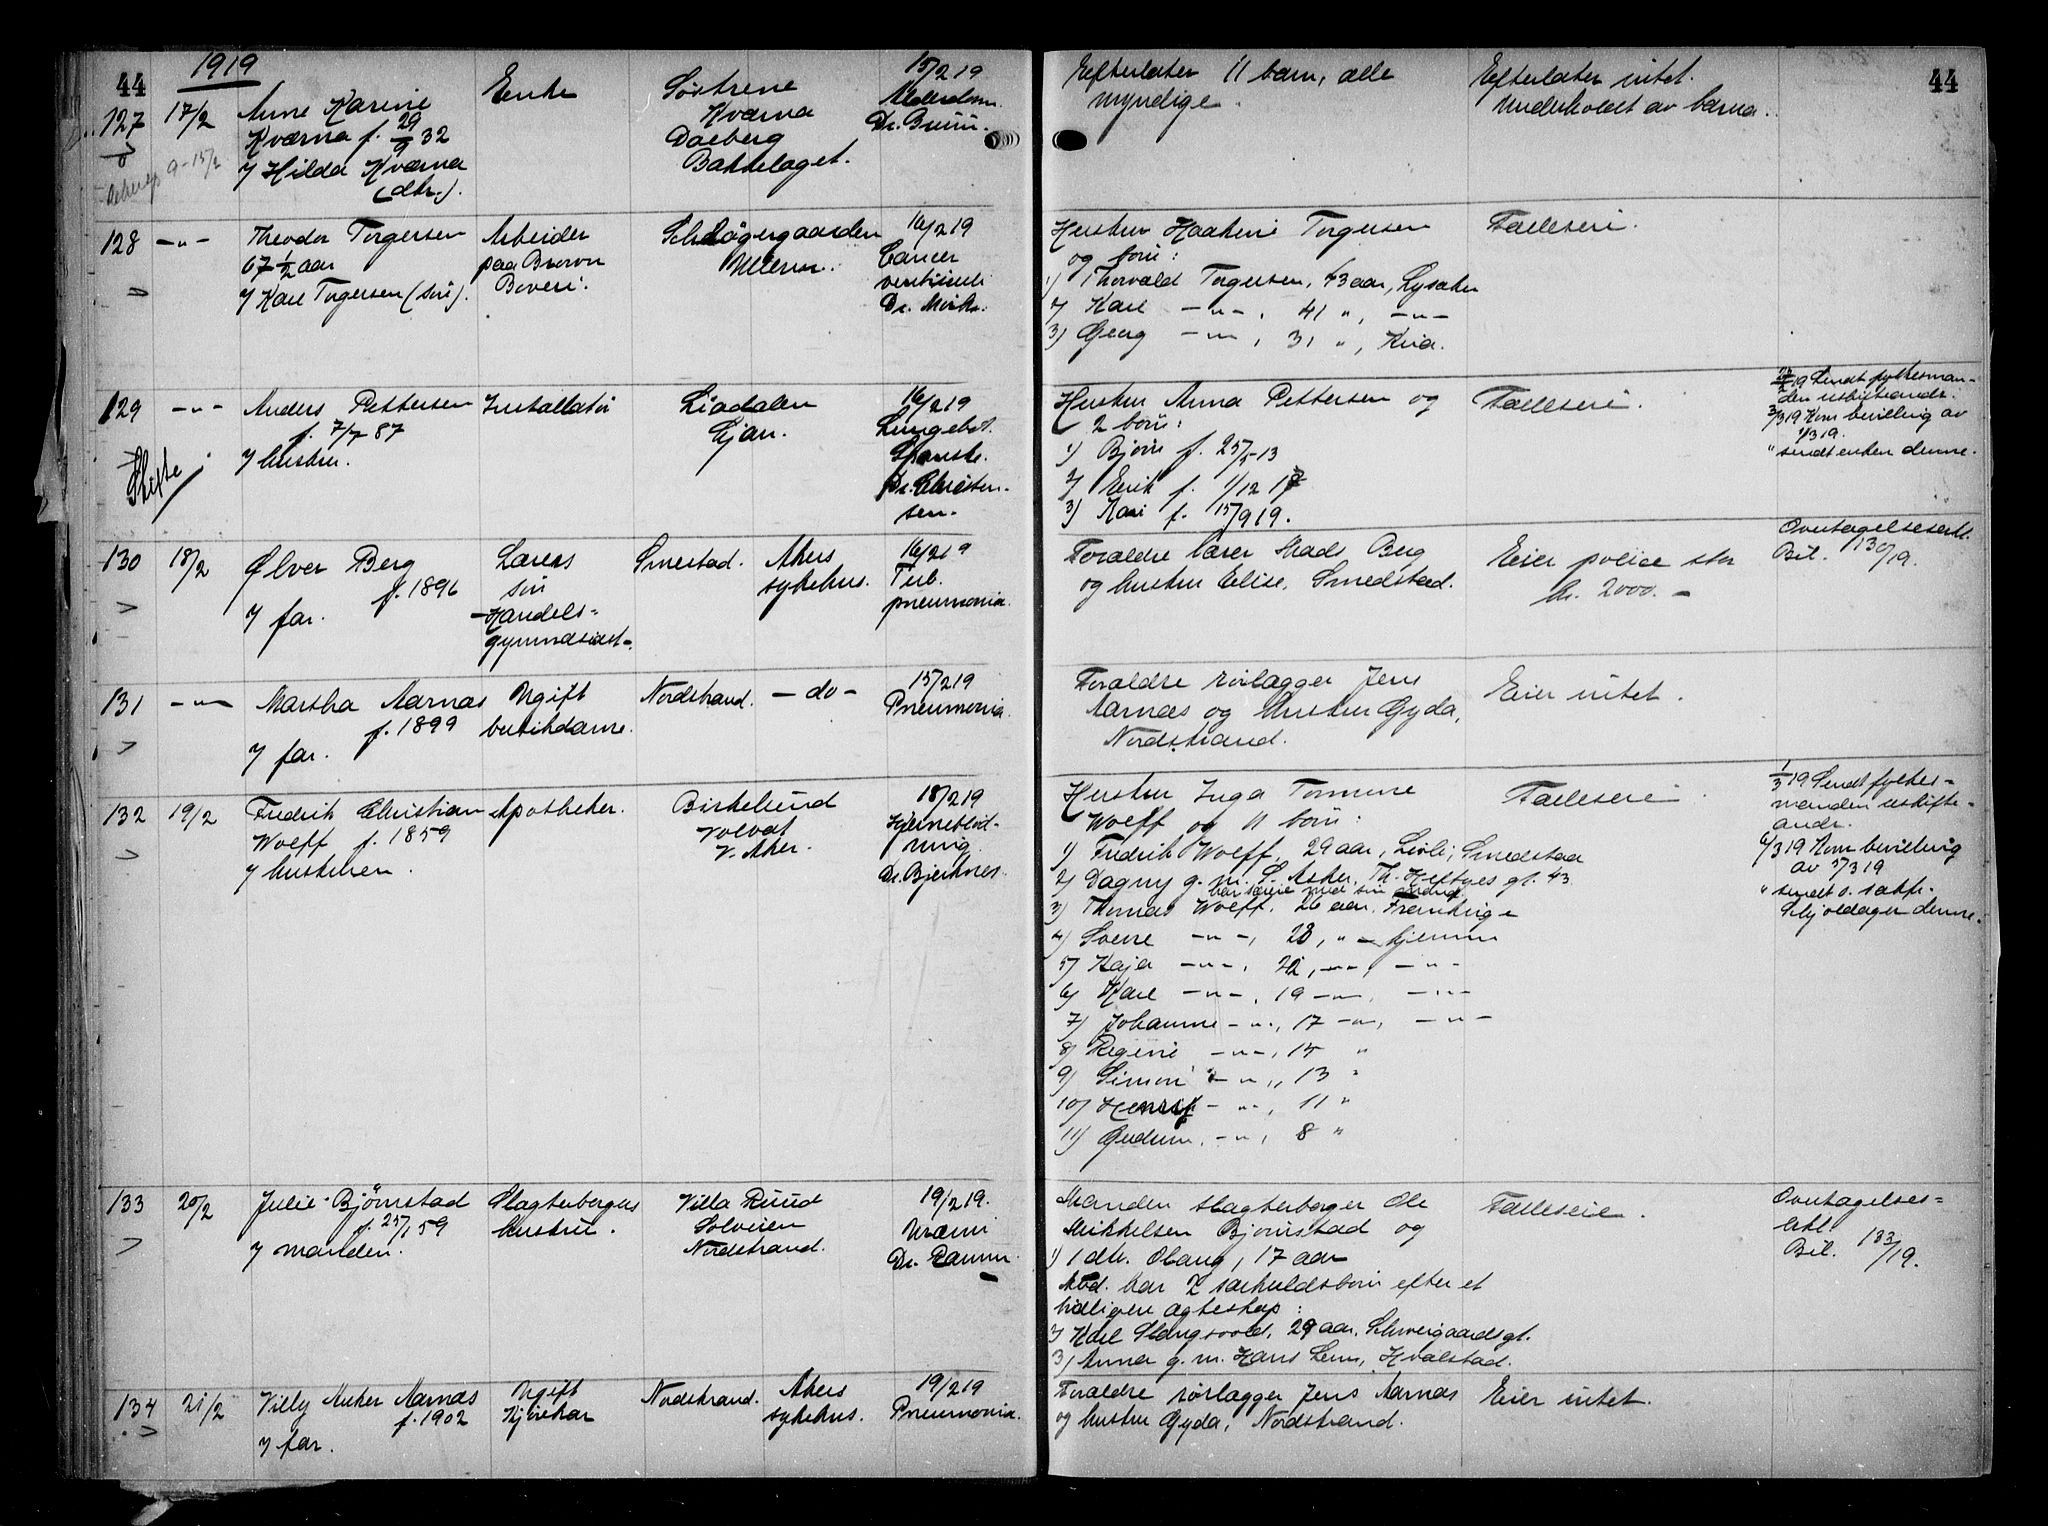 44
1919
127
17/2
Anne Karine
Kværna f. 29/9 32
v/ Hilda Kværna
(dtr.).
Enke
Søstrene
Kværna
Bakkelaget.
15/2 19
Alderdom.
Efterlater 11 barn, alle
myndige.
Efterlater intet.
Underholdt av barna.
44
128
-"-
Theodor Torgersen
67 1/2 aar
v/ Karl Torgersen (søn).
Arbeider
paa Brown
Boveri.
Ullern.
16/2 19
Cancer
ventriculi
Dr. Mørk.
Hustru Haakine Torgersen
og børn:
1) Thorvald Torgersen, 43 aar, Lysaker
2) Karl -"-, 41 ", -"-
3) Georg -"-, 31 ", Kria.
Fælleseie.
129
-"-
Skifte
Anders Pettersen
f. 7/7 87
v/ hustru.
Installatør
Liadalen
Ljan.
16/2 19
Lungebet.
Spanske.
Dr. Christen-
sen.
Hustru Anna Pettersen og
2 børn:
1) Bjørn f. 25/5-13
2) Erik f. 1/12 17
3) Kari f. 15/9 19.
Fælleseie.
19 Sendt fylkesman-
den uskifteandr.
3/3 19 Kom bevilling av
1/3 19.
" sendt enken denne.
130
18/2
Ølver Berg
f. 1896
v/ far.
Lærers
søn
Handels-
gymnasiast.
Smestad.
Akers
sykehus.
16/2 19
Tub.
pneumonia.
Forældre lærer Mads Berg
og hustru Elise, Smedstad.
Eier police stor
kr. 2000.-
Overtagelseserkl.
Bil. 130/19.
131
-"-
Martha Aarnæs
f. 1899
v/ far.
Ugift
butikdame.
Nordstrand.
- do -
15/2 19
Pneumonia.
Forældre rørlægger Jens
Aarnæs og hustru Gyda,
Nordstrand.
Eier intet.
132
19/2
Fredrik Christian
Wolff f. 1859
v/ hustruen.
Apotheker.
Birkelund
Volvat
V. Aker.
18/2 19
Hjerneblød-
ning.
Dr. Bjerknes.
Hustru Inga Tomine
Wolff og 11 børn:
1) Fredrik Wolff, 29 aar, Smedstad
2) Dagny g. m. S. Asker, Th. Heftyes gt. 43
3) Thomas Wolff, 26 aar, Frankrige
4) Sverre -"-, 23, " - hjemme
5) Kaja -"-, 22, -"-, -"-
6) Karl -"-, 19 -"-, -"-
7) Johanne -"-, 17 -"-, -"-
8) Regine -"-, 15 "
9) Simon -"-, 13 "
10) Henrik -"-, 11 "
11) Gudrun, -"-, 8 "
Fælleseie
1/3 19 Sendt fylkes-
manden uskifte-
andr.
6/3 19 Kom bevilling
av 5/3 19
" sendt o. sakf.
Schjoldager denne.
133
20/2
Julie Bjørnstad
f. 25/1 59
v/ manden.
Slagterborgers
hustru.
Villa Ruud
Solveien
Nordstrand.
19/2 19.
Uræmi
Dr. Ramm.
Manden slagterborger Ole
Mikkelsen Bjørnstad og
1) 1 dtr. Olaug, 17 aar
Avd. har 2 særkuldsbørn efter et
tidligere ægteskap:
2) Karl Slangsvold, 29 aar, Schweigaardsgt.
3) Anna g. m. Hans Lem, Hvalstad.
Fælleseie.
Overtagelses-
erkl.
Bil. 133/19.
134
21/2
Villy Anker Aarnæs
f. 1902
v/ far.
Ugift
Nordstrand.
Akers
sykehus.
19/2 19
Pneumonia.
Forældre rørlægger Jens Aarnæs
og hustru Gyda, Nordstrand.
Eier intet.